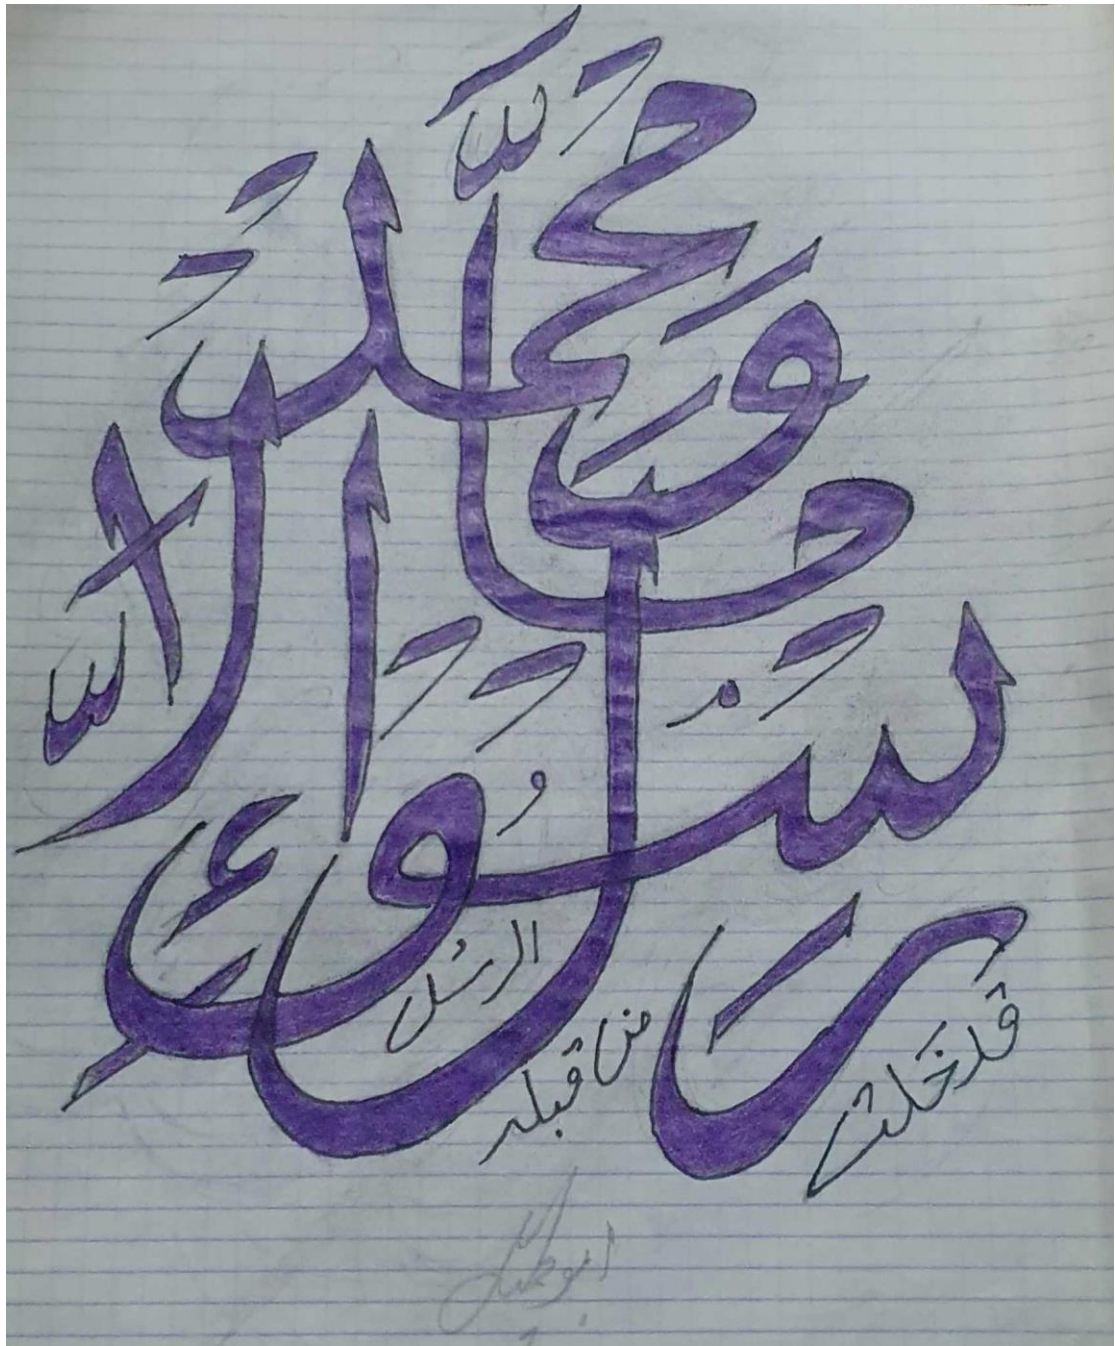 وَمَا مُحَمَّدٌ إِلَّا رَسُولٌ
قد خَلت
من قبله
الرسُل